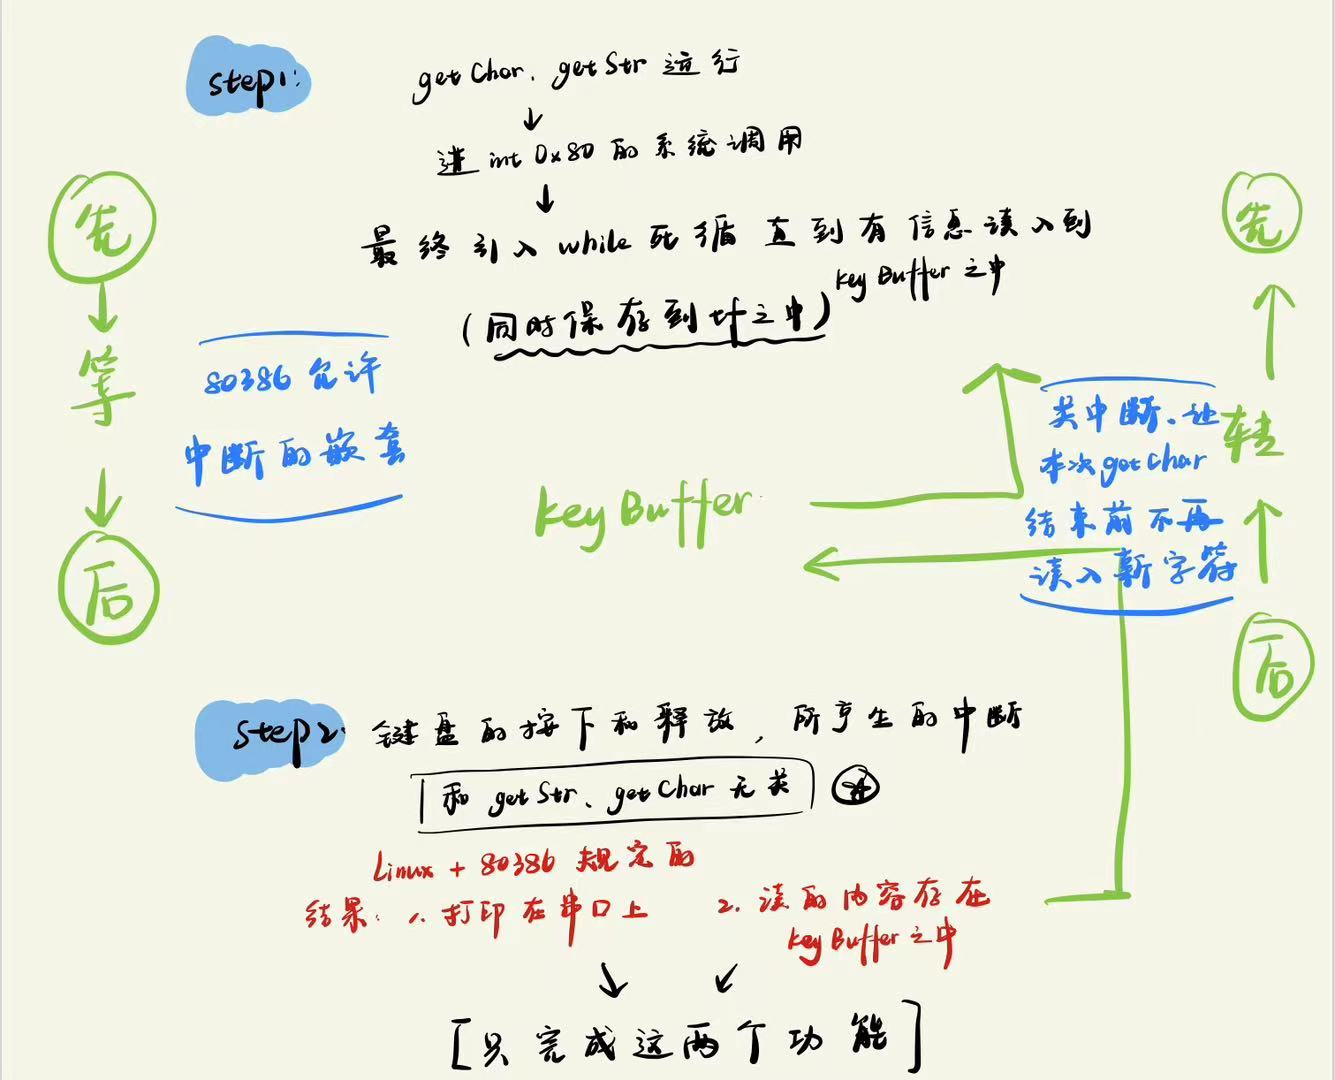 step1:
getChar、getStr 运行
进 int 0x80 的系统调用
最终引入 while 死循 直到有信息读入到
keyBuffer 之中
(同时保存到 tf 之中)
先
等
后
80386 允许
中断的嵌套
keyBuffer
关中断、让
本次 getChar
结束前不再
读入新字符
先
转
后
step2: 键盘的按下和释放, 所享生的中断
和 getStr、getChar 无关
Linux + 80386 规定的
结果: 1. 打印在串口上
2. 读的内容存在
keyBuffer 之中
[只完成这两个功能]